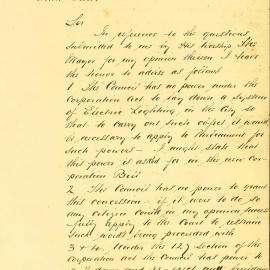 Sir
In reference to the questions
submitted to me by His Worship the
Mayor for my opinion thereon I have
the honor to address as follows
1 The Council has no power under the
Corporation Act to lay down a System
of Electric Lighting in the City so
that to carry out such it would
be necessary to apply to Parliament for
such power - I might state that
this power is asked for in the new Cor-
poration Bill
2 The Council has no power to grant
this concession - if it were to do so
any citizen could in my opinion success
fully apply to the Court to restrain
such works being proceeded with
3 & 4. Under the 127 section of the
Corporation Act the Council has power to